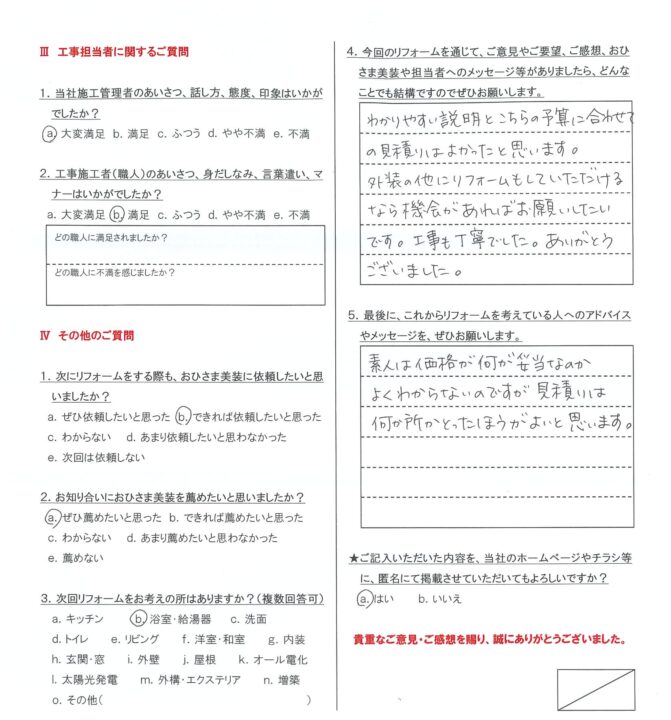 Ⅲ 工事担当者に関するご質問
1. 当社施工管理者のあいさつ、話し方、態度、印象はいかが
でしたか？
a. 大変満足 b. 満足 c. ふつう d. やや不満 e. 不満
2. 工事施工者(職人)のあいさつ、身だしなみ、言葉遣い、マ
ナーはいかがでしたか？
a. 大変満足 b. 満足 c. ふつう d. やや不満 e. 不満
どの職人に満足されましたか？
どの職人に不満を感じましたか？
Ⅳ その他のご質問
1. 次にリフォームをする際も、おひさま美装に依頼したいと思
いましたか？
a. ぜひ依頼したいと思った b. できれば依頼したいと思った
c. わからない d. あまり依頼したいと思わなかった
e. 次回は依頼しない
2. お知り合いにおひさま美装を薦めたいと思いましたか？
a. ぜひ薦めたいと思った b. できれば薦めたいと思った
c. わからない d. あまり薦めたいと思わなかった
e. 薦めない
3. 次回リフォームをお考えの所はありますか？(複数回答可)
a. キッチン b. 浴室・給湯器 c. 洗面
d. トイレ e. リビング f. 洋室・和室 g. 内装
h. 玄関・窓 i. 外壁 j. 屋根 k. オール電化
l. 太陽光発電 m. 外構・エクステリア n. 増築
o. その他( )
4. 今回のリフォームを通じて、ご意見やご要望、ご感想、おひ
さま美装や担当者へのメッセージ等がありましたら、どんな
ことでも結構ですのでぜひお願いします。
わかりやすい説明とこちらの予算に合わせて
の見積りはよかったと思います。
外装の他にリフォームもしていただける
なら機会があればお願いしたい
です。工事も丁寧でした。ありがとう
ございました。
5. 最後に、これからリフォームを考えている人へのアドバイス
やメッセージを、ぜひお願いします。
素人は価格が何が妥当なのか
よくわからないのですが見積りは
何か所かとったほうがよいと思います。
★ご記入いただいた内容を、当社のホームページやチラシ等
に、匿名にて掲載させていただいてもよろしいですか？
a. はい b. いいえ
貴重なご意見・ご感想を賜り、誠にありがとうございました。